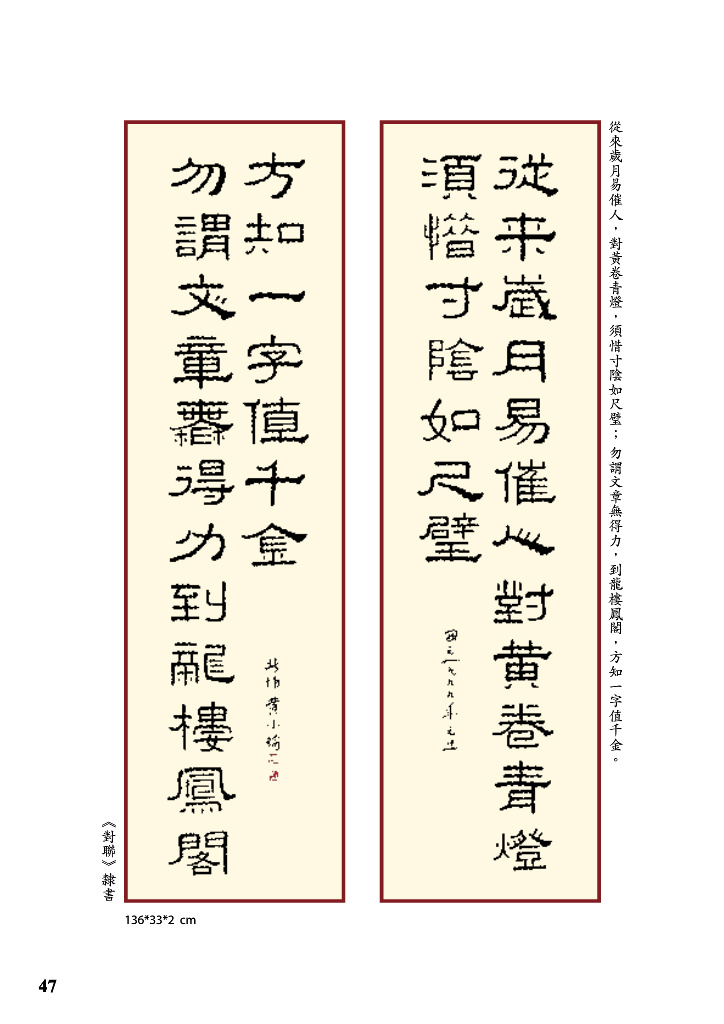 從來歲月易催人，對黃卷青燈，須惜寸陰如尺璧；勿謂文章無得力，到龍樓鳳閣，方知一字值千金。
從来歲月易催人對黃卷青燈
須惜寸陰如尺璧
元一九九九年元旦
勿謂文章無得力到龍樓鳳閣
方知一字值千金
黃小
《對聯》隸書
136*33*2 cm
47